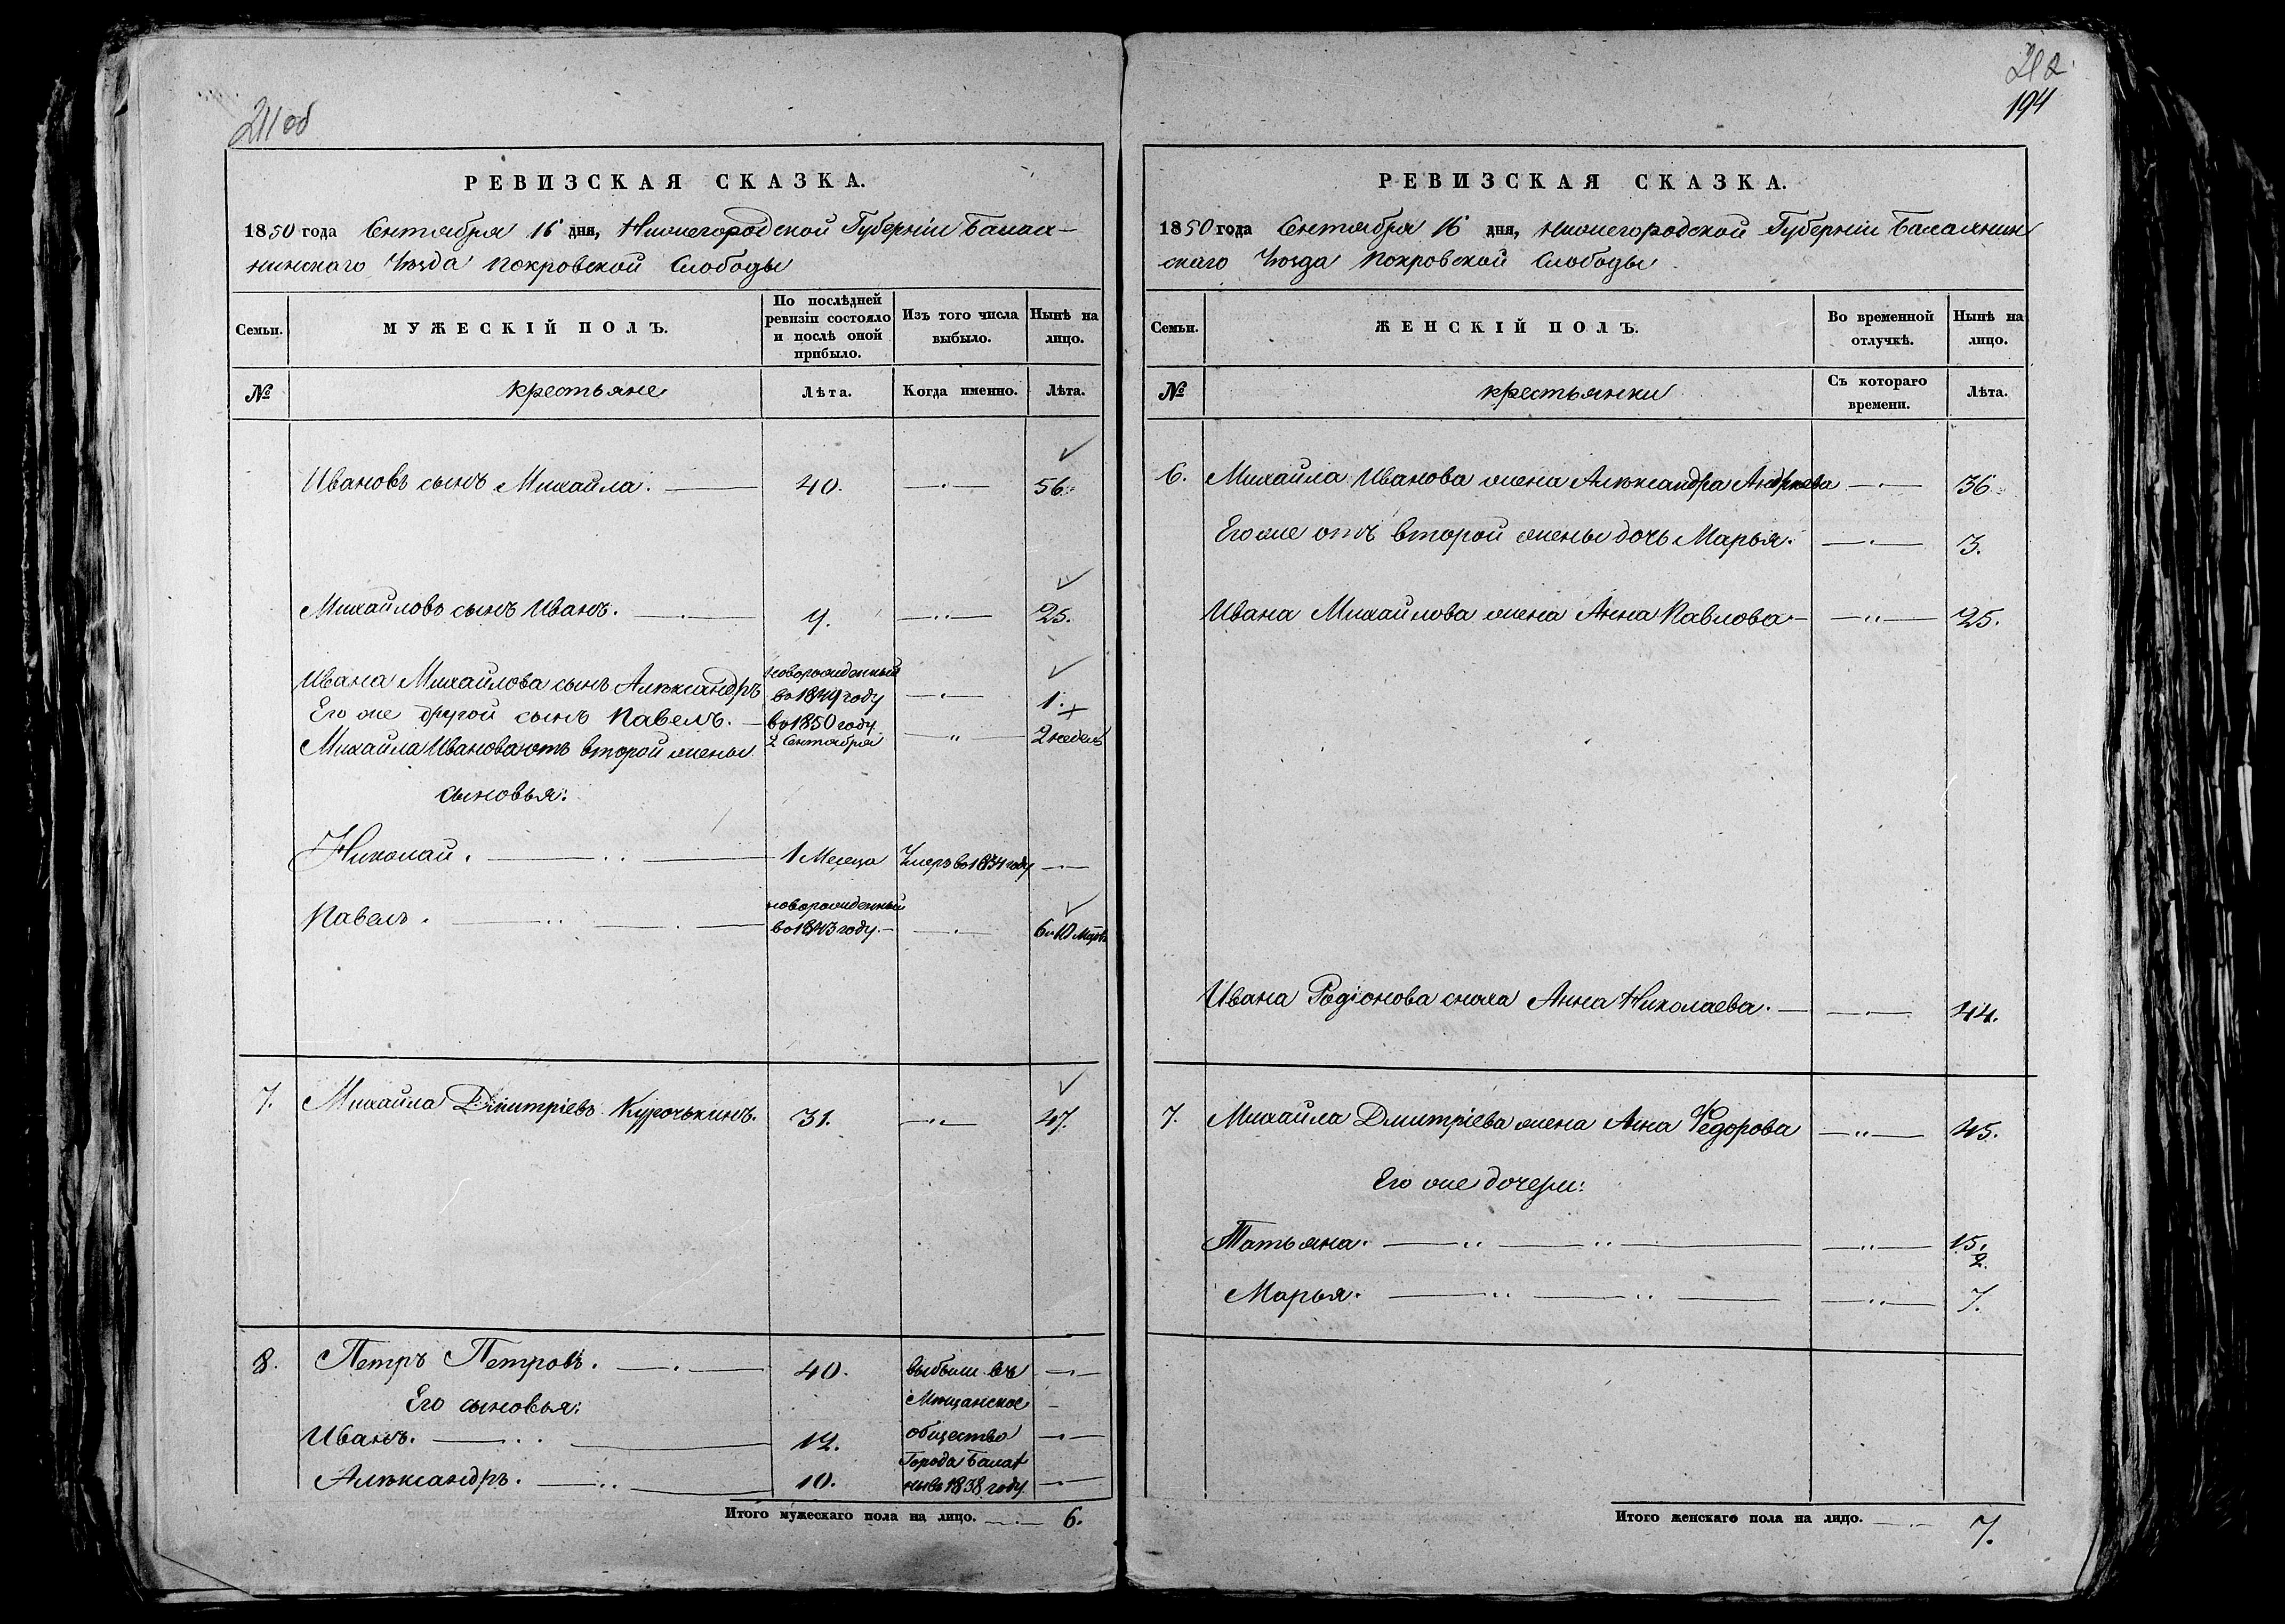 211 об
РЕВИЗСКАЯ СКАЗКА.
1850 года Сентября 16 дня, Нижегородской Губерніи Балах-
нинскаго Уѣзда Покровской Слободы
Семьи.
МУЖЕСКІЙ ПОЛЪ.
По послѣдней ревизіи состояло и послѣ оной прибыло.
Изъ того числа выбыло.
Нынѣ на лицо.
№ крестьяне Лѣта. Когда именно. Лѣта.
Ивановъ сынъ Михайла. 40. 56.
Михайловъ сынъ Иванъ. 9. 25.
Ивана Михайлова сынъ Алѣксандръ новорожденный во 1849 году 1.
Его же другой сынъ Павелъ. во 1850 году 2 Сентября 2 недель
Михайла Иванова отъ второй жены
сыновья:
Николай. 1 Месеца Умеръ во 1834 году
Павелъ. новорожденный во 1843 году. 6 и 10 Мцовъ
7. Михайла Дмитріевъ Курочькинъ. 31. 47.
8. Петръ Петровъ. 40. выбыли въ
Его сыновья: Мѣщанское
Иванъ. 12. общество
Города Балах
Алѣксандръ. 10. ны во 1838 году
Итого мужескаго пола на лицо. 6.
212
194
РЕВИЗСКАЯ СКАЗКА.
1850 года Сентября 16 дня, Нижегородской Губерніи Балахнин
скаго Уѣзда Покровской Слободы
Семьи.
ЖЕНСКІЙ ПОЛЪ.
Во временной отлучкѣ.
Нынѣ на лицо.
№ крестьянки Съ котораго времени. Лѣта.
6. Михайла Иванова жена Алѣксандра Андреева 36
Его же отъ второй жены дочь Марья. 3.
Ивана Михайлова жена Анна Павлова 25.
Ивана Родіонова сноха Анна Николаева. 44.
7. Михайла Дмитріева жена Анна Федорова 45.
Его же дочери:
Татьяна. 15.
2.
Марья. 7.
Итого женскаго пола на лицо. 7.